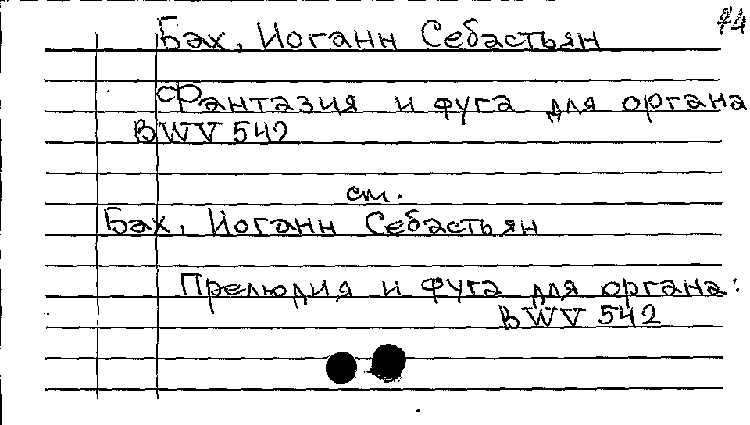 44
Бах, Иоганн Себастьян
Фантазия и фуга для органа
BWV 542
см.
Бах, Иоганн Себастьян
Прелюдия и фуга для органа:
BWV 542